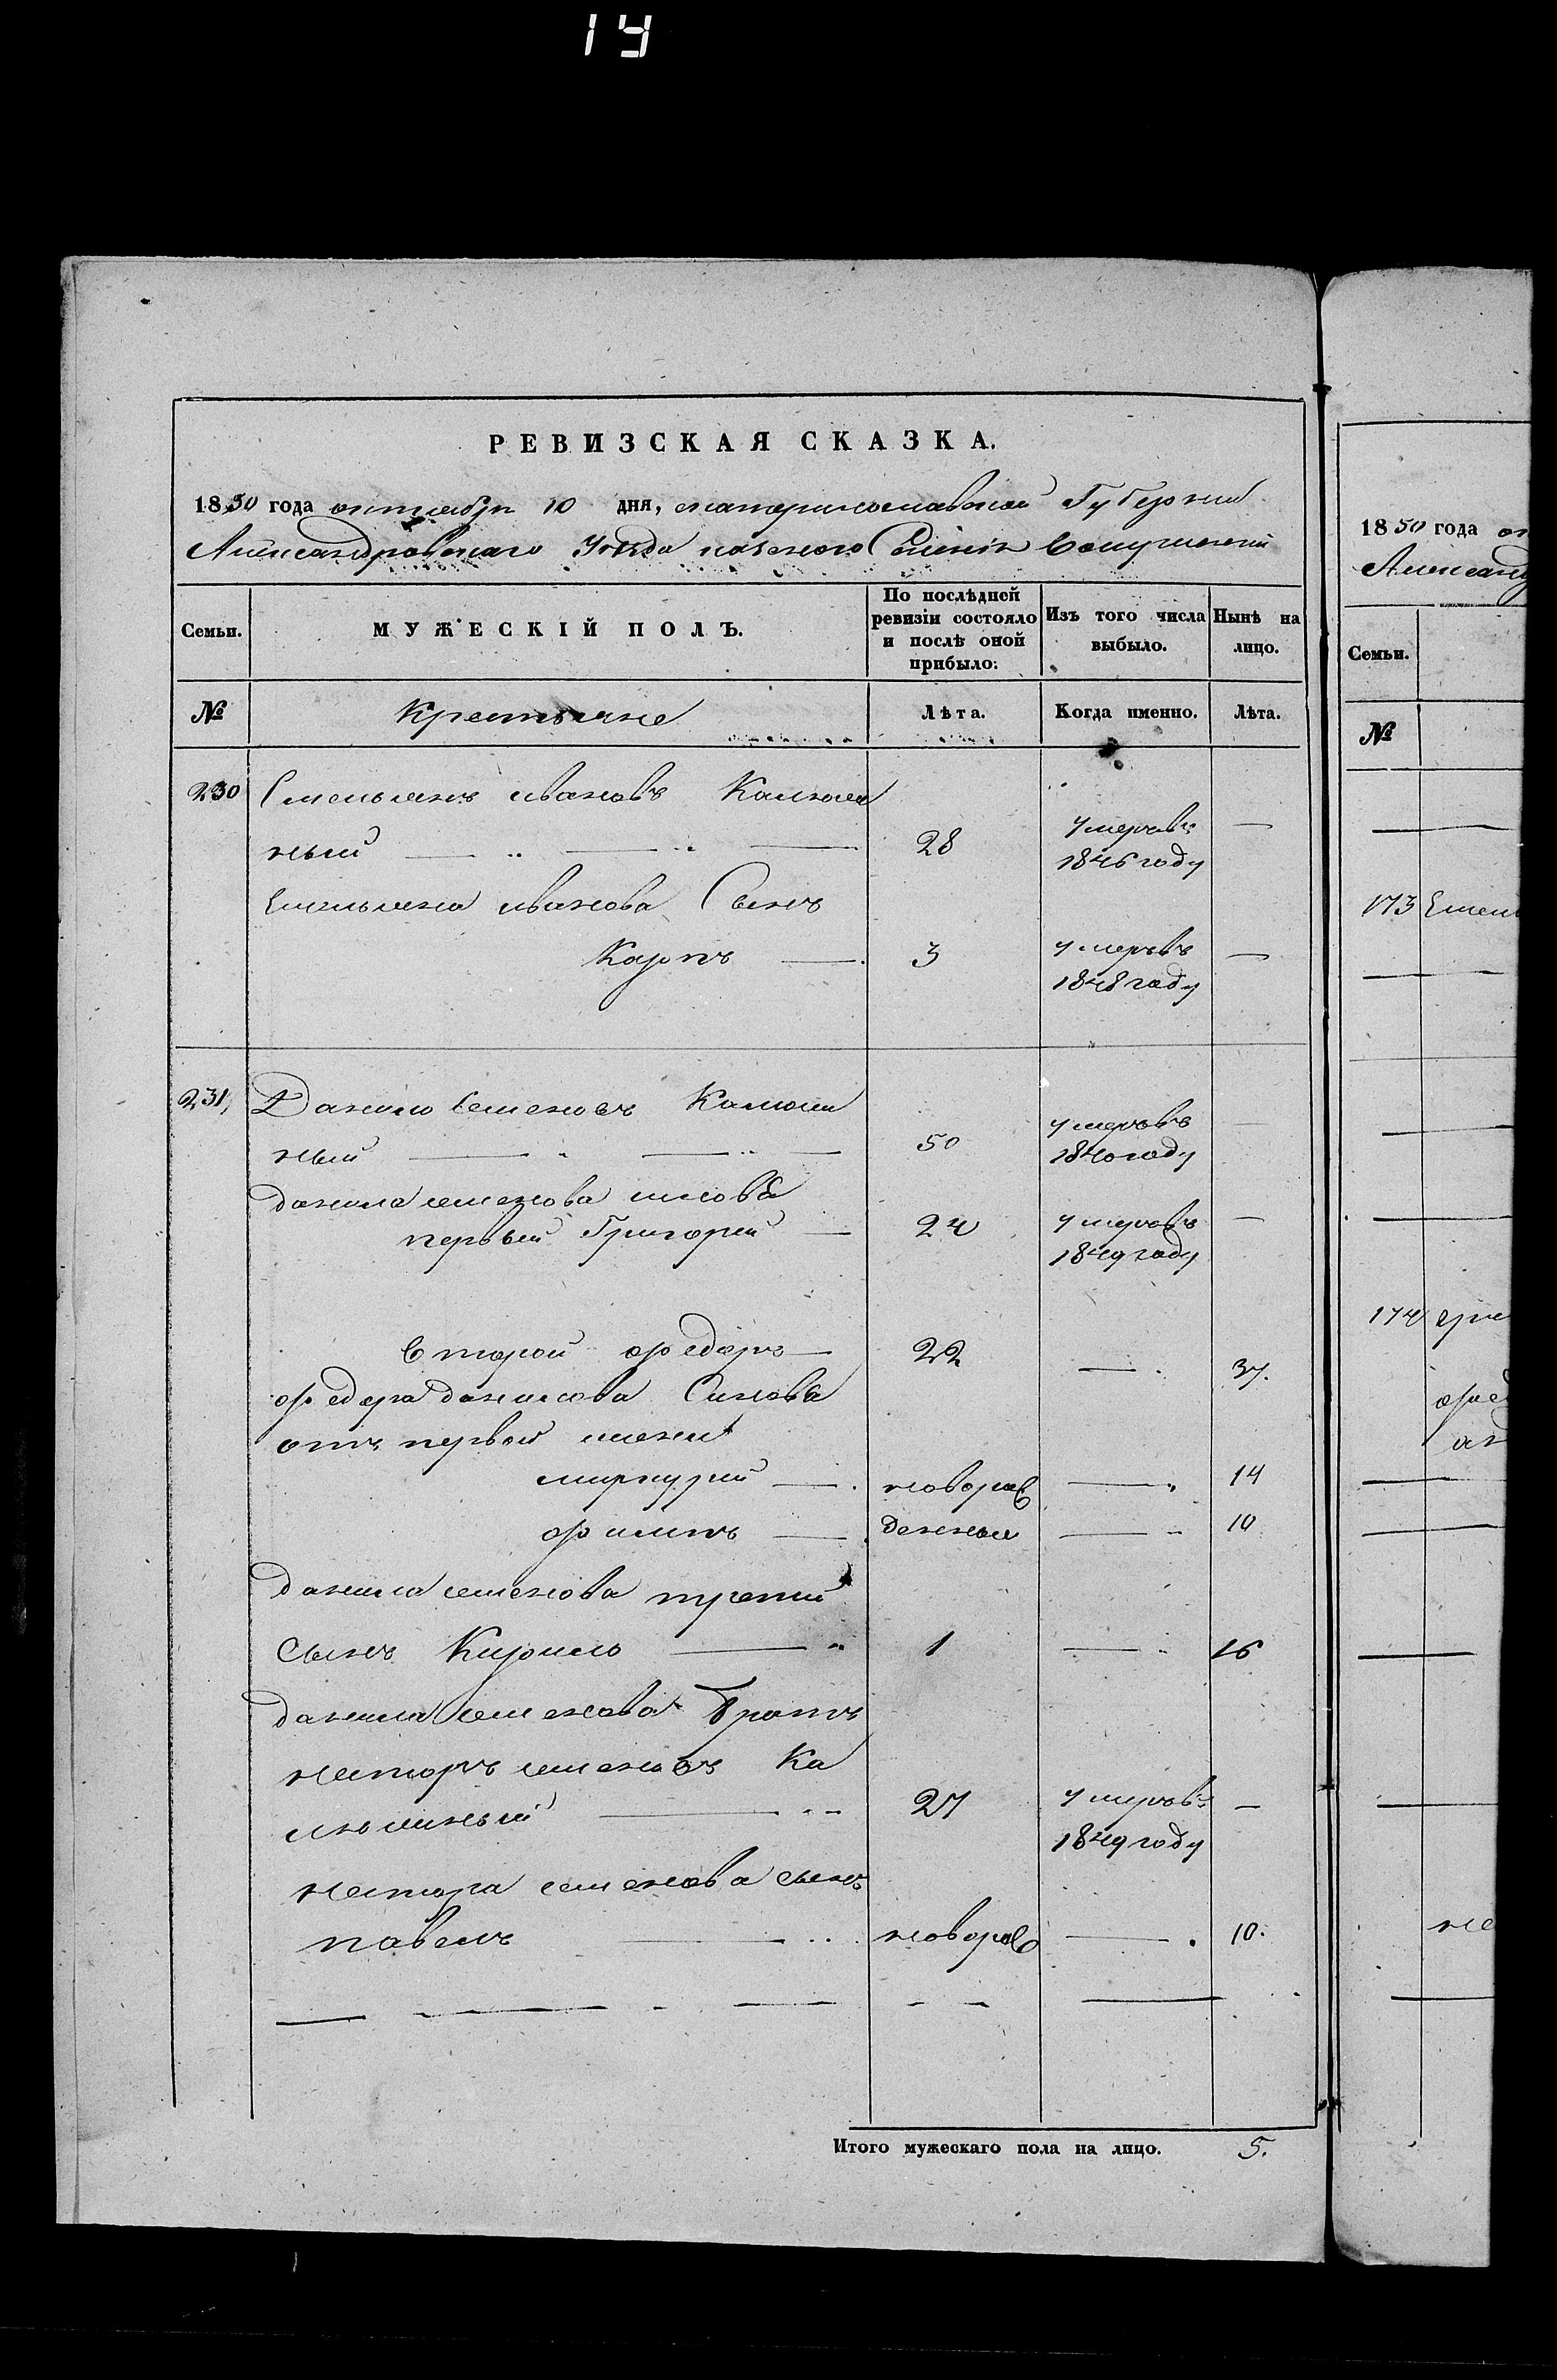 14
РЕВИЗСКАЯ СКАЗКА.
1850 года октября 10 дня, екатеринославской Губернии
Александровскаго Уезда казеного Селенія
Семьи.
МУЖЕСКІЙ ПОЛЪ.
По послѣдней ревизіи состояло и послѣ оной прибыло:
Изъ того числа выбыло.
Нынѣ на лицо.
№
Крестьяне
Лѣта.
Когда именно.
Лѣта.
230 Емельянъ ивановъ Калюж
ный — 28 умеръ въ 1846 году —
Емельяна иванова Сынъ
Карпъ — 3 умеръ въ 1848 году —
231, Данило семеновъ Калюж
ный — 50 умеръ въ 1840 году —
данила семенова сиковя
первый Григорей — 24 умеръ въ 1849 году —
второй федоръ — 22 — 37.
федора данилова Синовя
отъ первой жени
миркурий — новорож — 14
филипъ — денные — 10
данила семенова третий
Сынъ Кирило — 1 — 16
данила семенова Братъ
несторъ семеновъ Ка
люжный — 27 умеръ въ 1849 году —
нестора семенова сынъ
павелъ — новорож — 10.
Итого мужескаго пола на лицо. 5.
1850 года ок
Александ
Семьи.
№
173 Емел
174 гри
фед